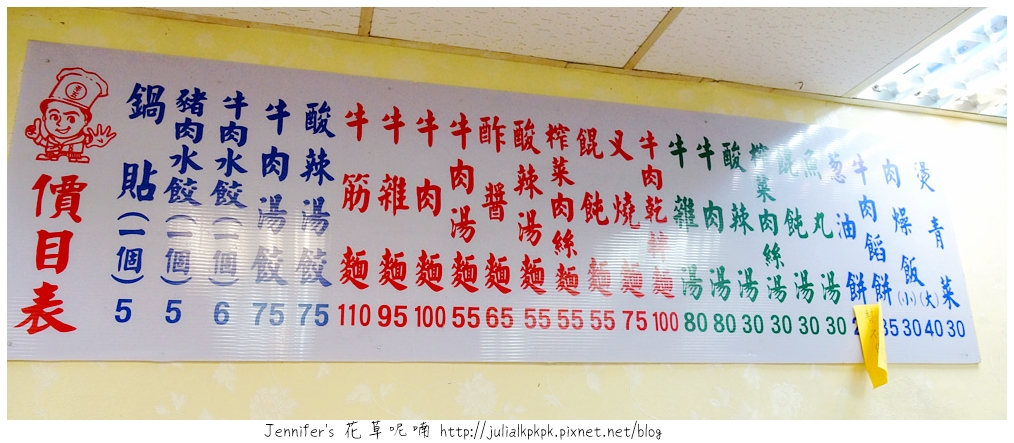 價目表
鍋貼(一個) 5
豬肉水餃(一個) 5
牛肉水餃(一個) 6
牛肉湯餃 75
酸辣湯餃 75
牛筋麵 110
牛雜麵 95
牛肉麵 100
牛肉湯麵 55
酢醬麵 65
酸辣湯麵 55
榨菜肉絲麵 55
餛飩麵 55
叉燒麵 75
牛肉乾拌麵 100
牛雜湯 80
牛肉湯 80
酸辣湯 30
榨菜肉絲湯 30
餛飩湯 30
魚丸湯 30
葱油餅
牛肉餡餅
肉燥飯(小)(大) 30 40
燙青菜 30
Jennifer's 花草呢喃 http://julialkpkpk.pixnet.net/blog